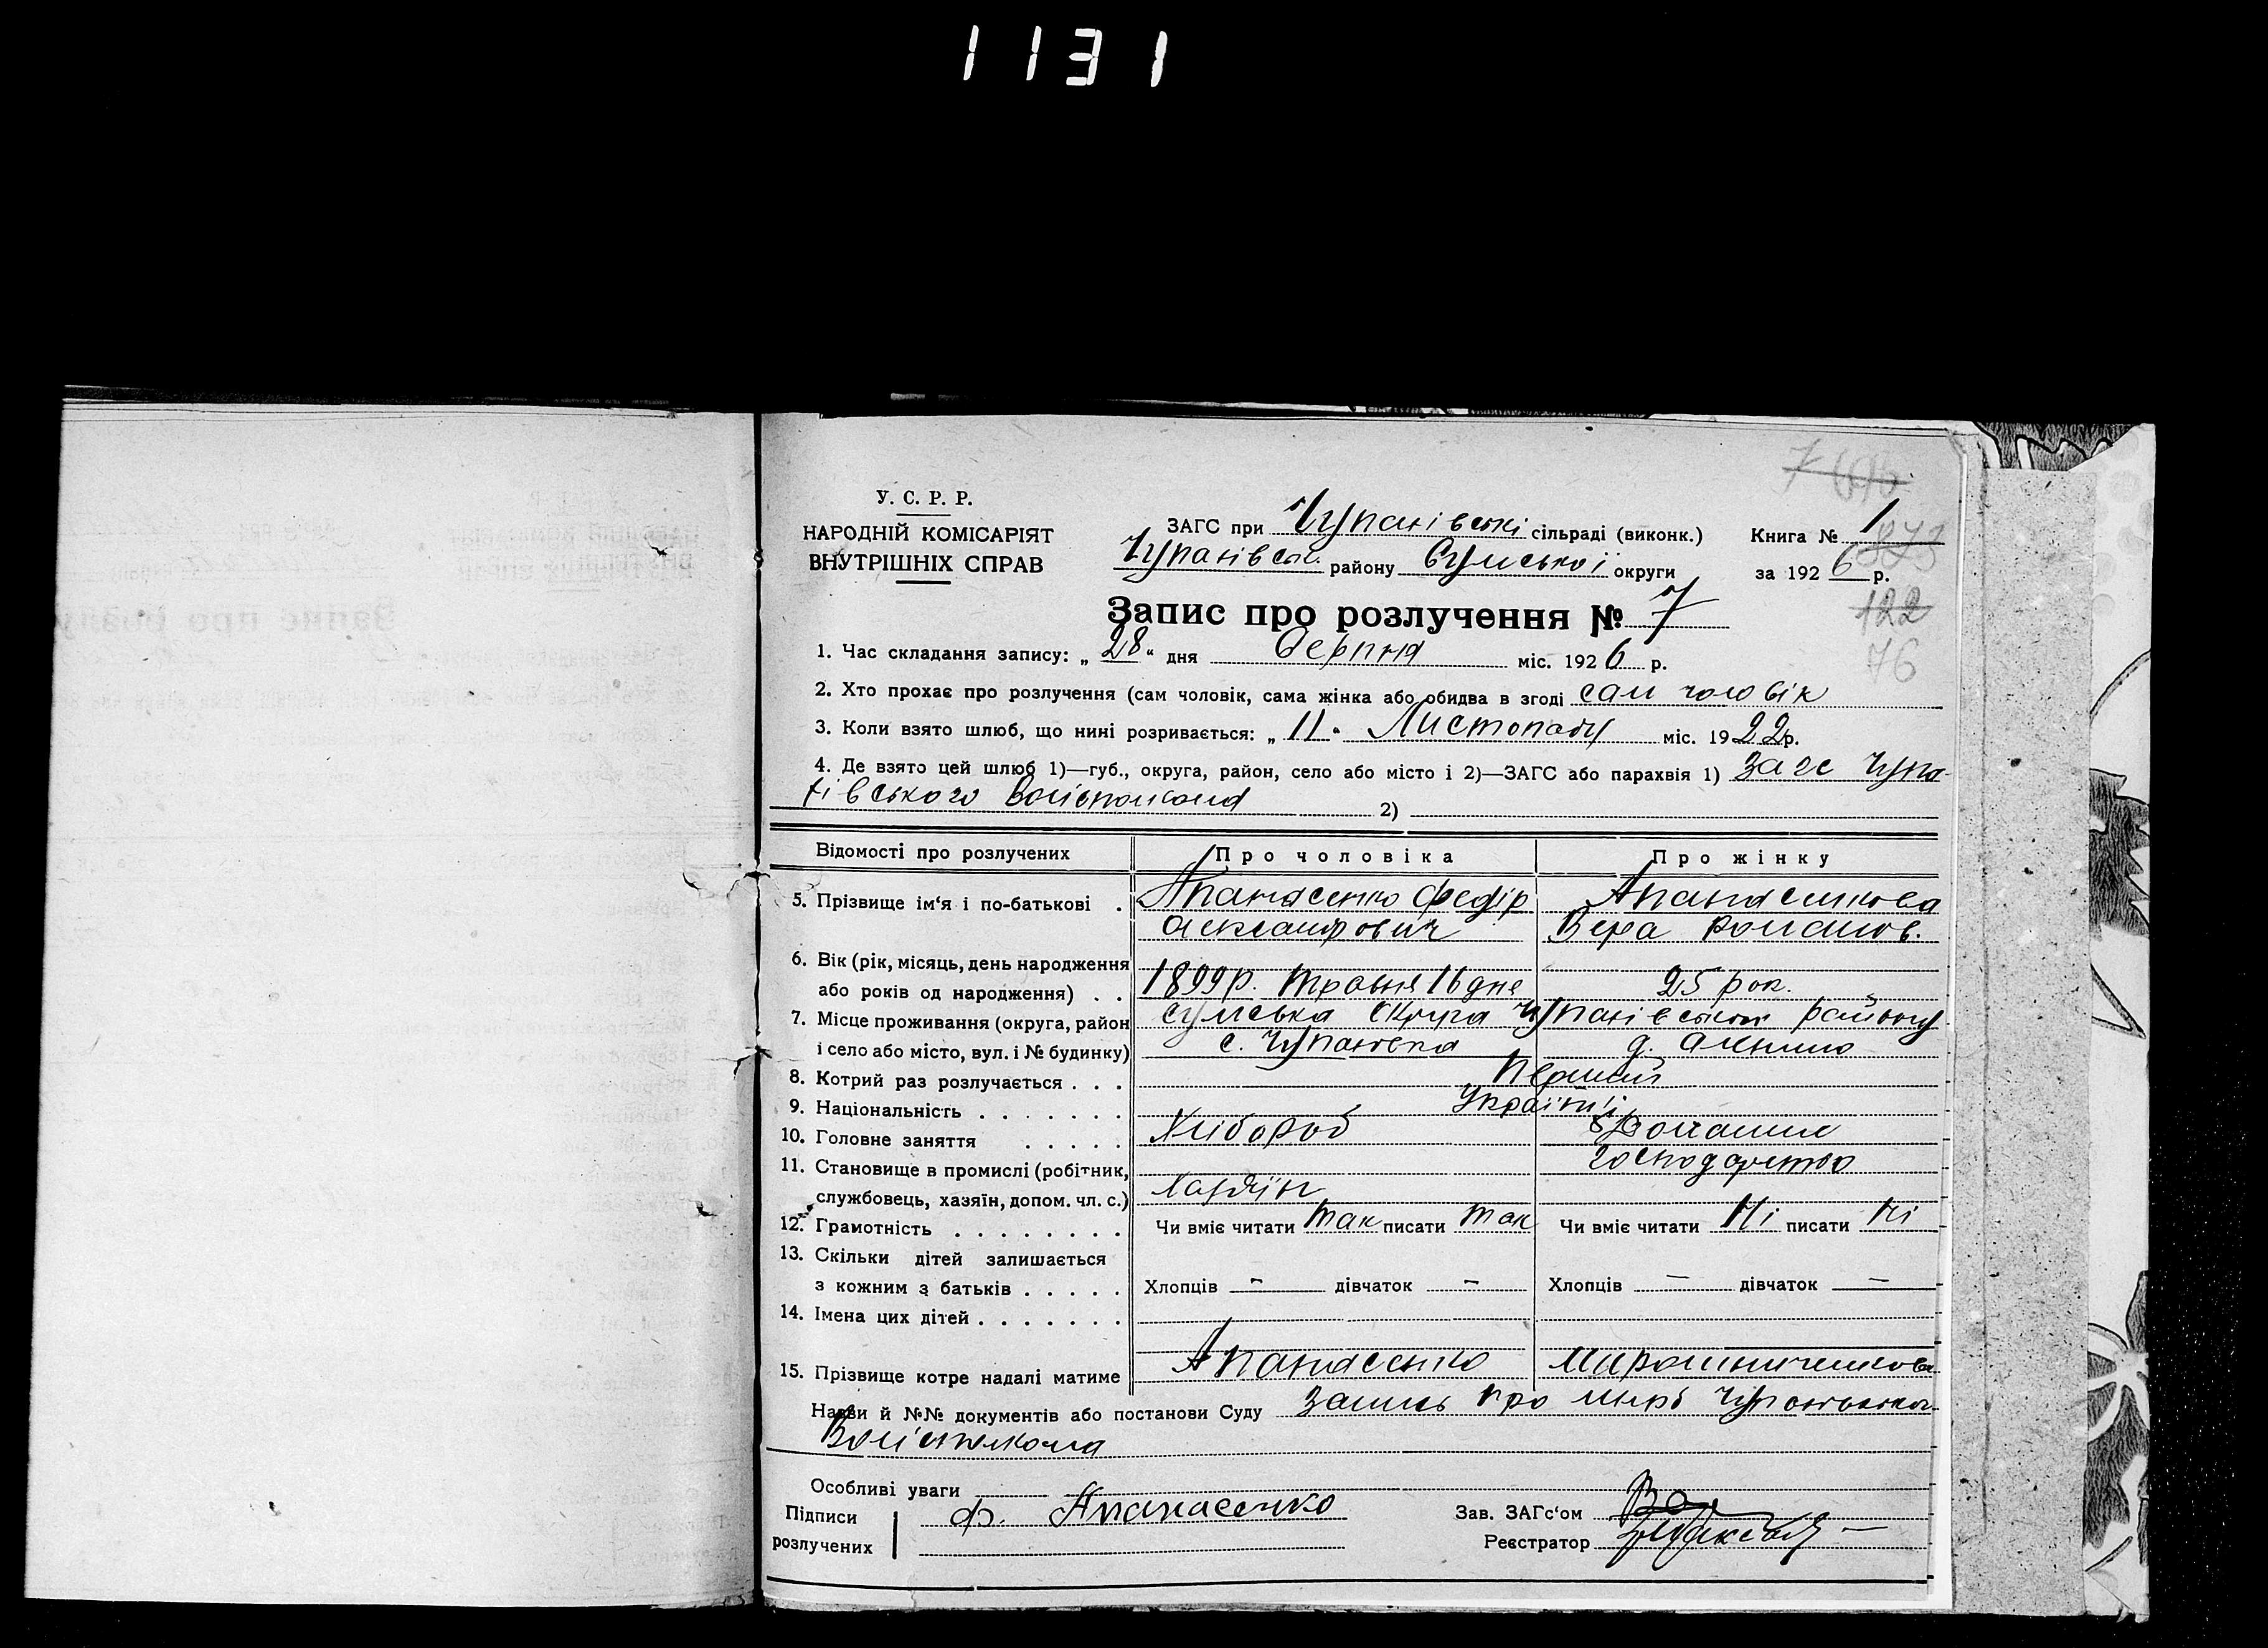 1131
7 696
У. С. Р. Р.
НАРОДНІЙ КОМІСАРІЯТ
ВНУТРІШНІХ СПРАВ
ЗАГС при Чупахівські сільраді (виконк.)
Чупахівськ. району Сумської округи
Книга № 1
873
за 1926 р.
Запис про розлучення № 7
122
76
1. Час складання запису: „28“ дня Серпня міс. 1926 р.
2. Хто прохає про розлучення (сам чоловік, сама жінка або обидва в згоді сам чоловік
3. Коли взято шлюб, що нині розривається: „11“ Листопаду міс. 1922р.
4. Де взято цей шлюб 1)—губ., округа, район, село або місто і 2)—ЗАГС або парахвія 1) Загс Чупа-
хівського Волівиконкома 2)
Відомості про розлучених Про чоловіка Про жінку
5. Прізвище ім‘я і по-батькові . Апанасенко Федір Апанасенкова
Олександрович Вера Романов.
6. Вік (рік, місяць, день народження
або років од народження) . . 1899р. Травня 16 дня 25 рок.
7. Місце проживання (округа, район Сумська Округа Чупахівського району
і село або місто, вул. і № будинку) с. Чупахівка
8. Котрий раз розлучається . . . Перший
9. Національність . . . . . . . Україн'ці
10. Головне заняття . . . . . Хлібороб Домашнє
господарство
11. Становище в промислі (робітник,
службовець, хазяїн, допом. чл. с.) Хазяїн
12. Грамотність . . . . . . . . Чи вміє читати так писати так Чи вміє читати Ні писати ні
13. Скільки дітей залишається
з кожним з батьків . . . . . Хлопців - дівчаток - Хлопців — дівчаток —
14. Імена цих дітей . . . . . . .
15. Прізвище котре надалі матиме Апанасенко Мирошниченкова
Назви й №№ документів або постанови Суду Запись про шлюб
Особливі уваги
Підписи
розлучених
Ф. Апанасенко
Зав. ЗАГс‘ом
Реєстратор